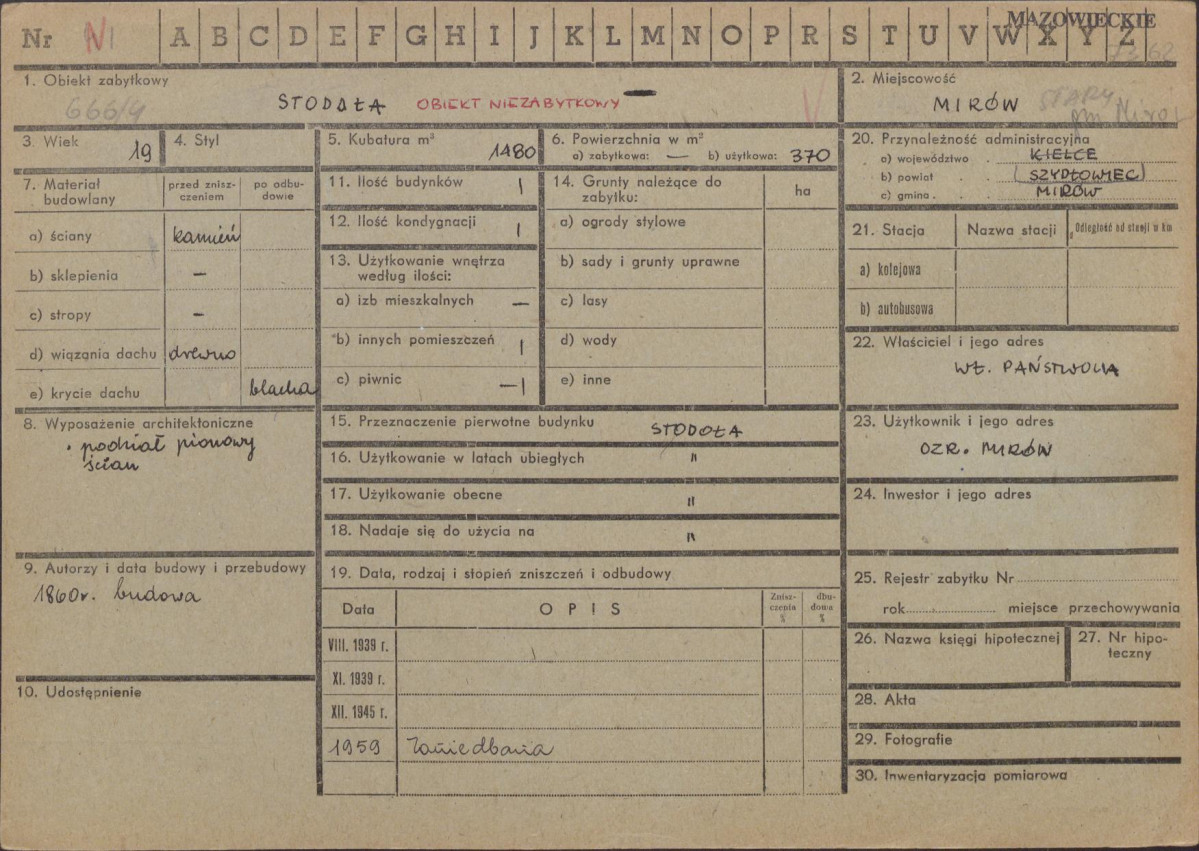 MAZOWIECKIE
Nr N A B C D E F G H I J K L M N O P R S T U V W X Y Z
1. Obiekt zabytkowy
666/4
STODOŁA OBIEKT NIEZABYTKOWY
2. Miejscowość
MIRÓW STARY
3. Wiek 19
4. Styl
5. Kubatura m³ 1480
6. Powierzchnia w m²
a) zabytkowa: — b) użytkowa: 370
7. Materiał budowlany
przed znisz-
czeniem
po odbu-
dowie
a) ściany kamień
b) sklepienia —
c) stropy —
d) wiązania dachu drewno
e) krycie dachu blacha
8. Wyposażenie architektoniczne
podział pionowy
ścian
9. Autorzy i data budowy i przebudowy
1860r. budowa
10. Udostępnienie
11. Ilość budynków 1
12. Ilość kondygnacji 1
13. Użytkowanie wnętrza
według ilości:
a) izb mieszkalnych —
b) innych pomieszczeń 1
c) piwnic —1
14. Grunty należące do
zabytku:
ha
a) ogrody stylowe
b) sady i grunty uprawne
c) lasy
d) wody
e) inne
15. Przeznaczenie pierwotne budynku STODOŁA
16. Użytkowanie w latach ubiegłych "
17. Użytkowanie obecne "
18. Nadaje się do użycia na "
19. Data, rodzaj i stopień zniszczeń i odbudowy
Data OPIS
Znisz-
czenia
%
dbu-
dowa
%
VIII. 1939 r.
XI. 1939 r.
XII. 1945 r.
1959 Zaniedbania
20. Przynależność administracyjna
a) województwo . KIELCE
b) powiat . SZYDŁOWIEC
c) gmina . . MIRÓW
21. Stacja Nazwa stacji Odległość od stacji w km
a) kolejowa
b) autobusowa
22. Właściciel i jego adres
WŁ. PAŃSTWOWA
23. Użytkownik i jego adres
OZR. MIRÓW
24. Inwestor i jego adres
25. Rejestr zabytku Nr
rok miejsce przechowywania
26. Nazwa księgi hipotecznej
27. Nr hipo-
teczny
28. Akta
29. Fotografie
30. Inwentaryzacja pomiarowa